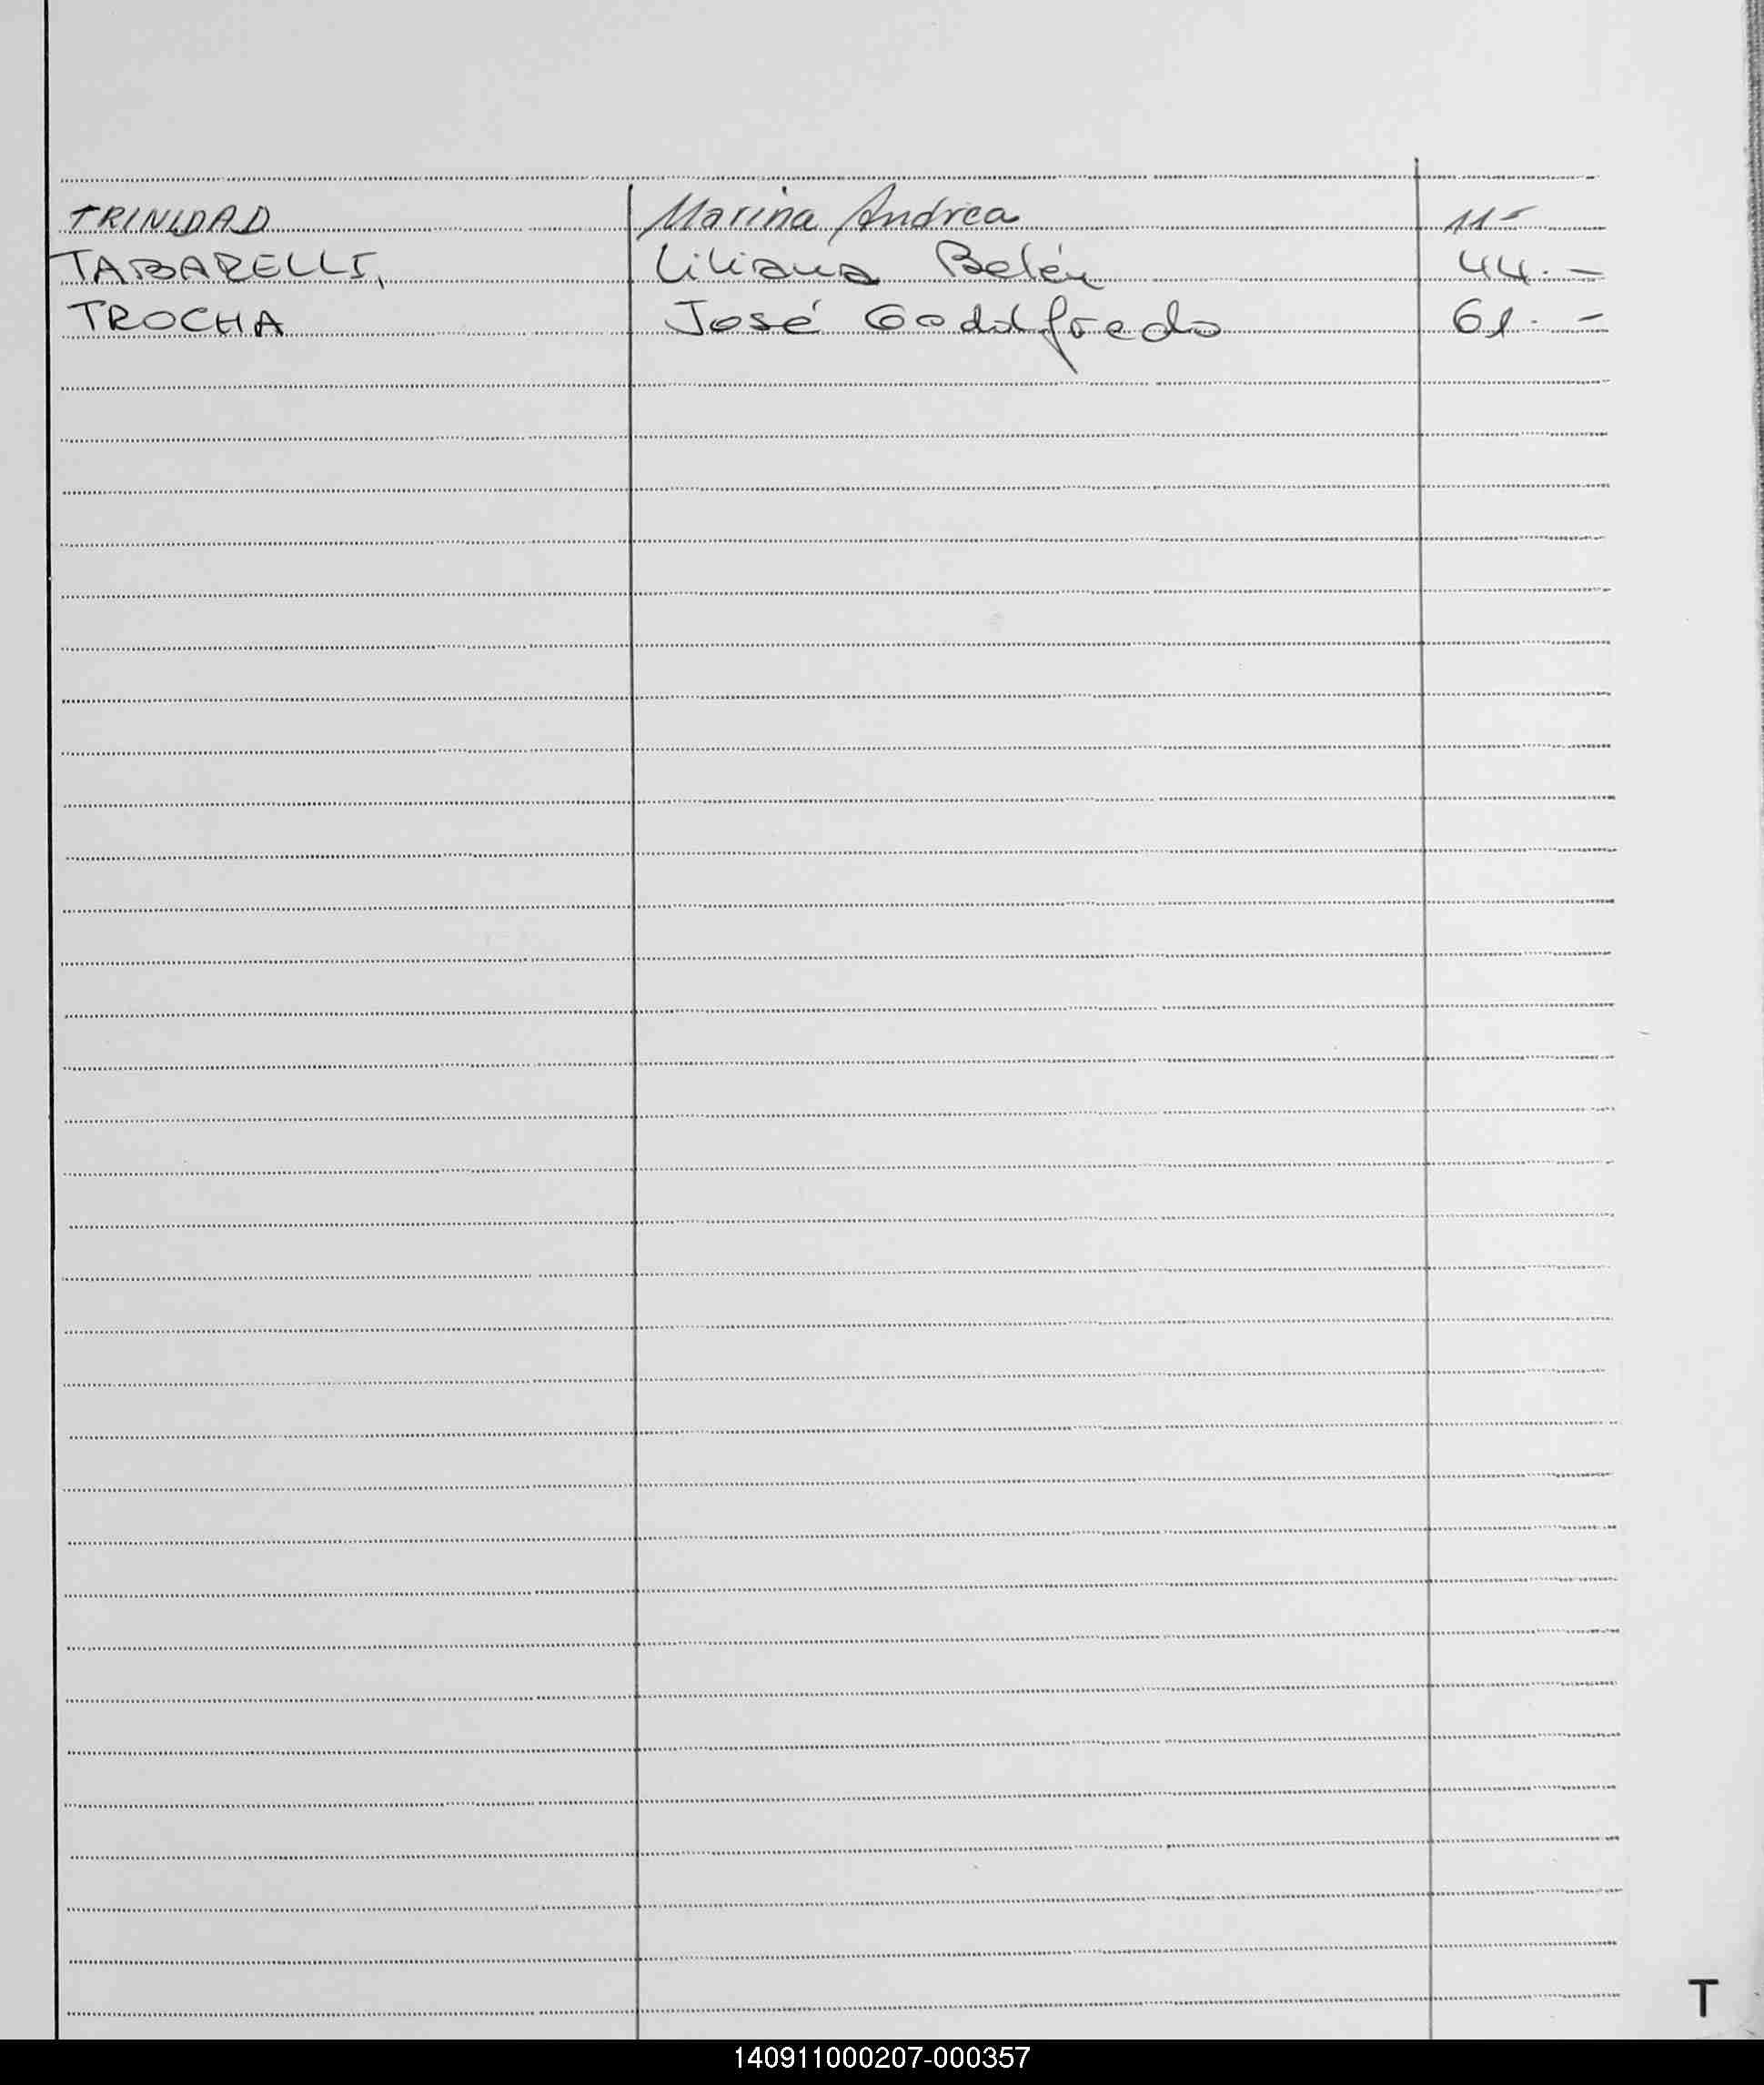 TRINIDAD Marina Andrea 11-
TABARELLI, Liliana Belén 44.-
TROCHA José Godolfredo 61.-
T
140911000207-000357